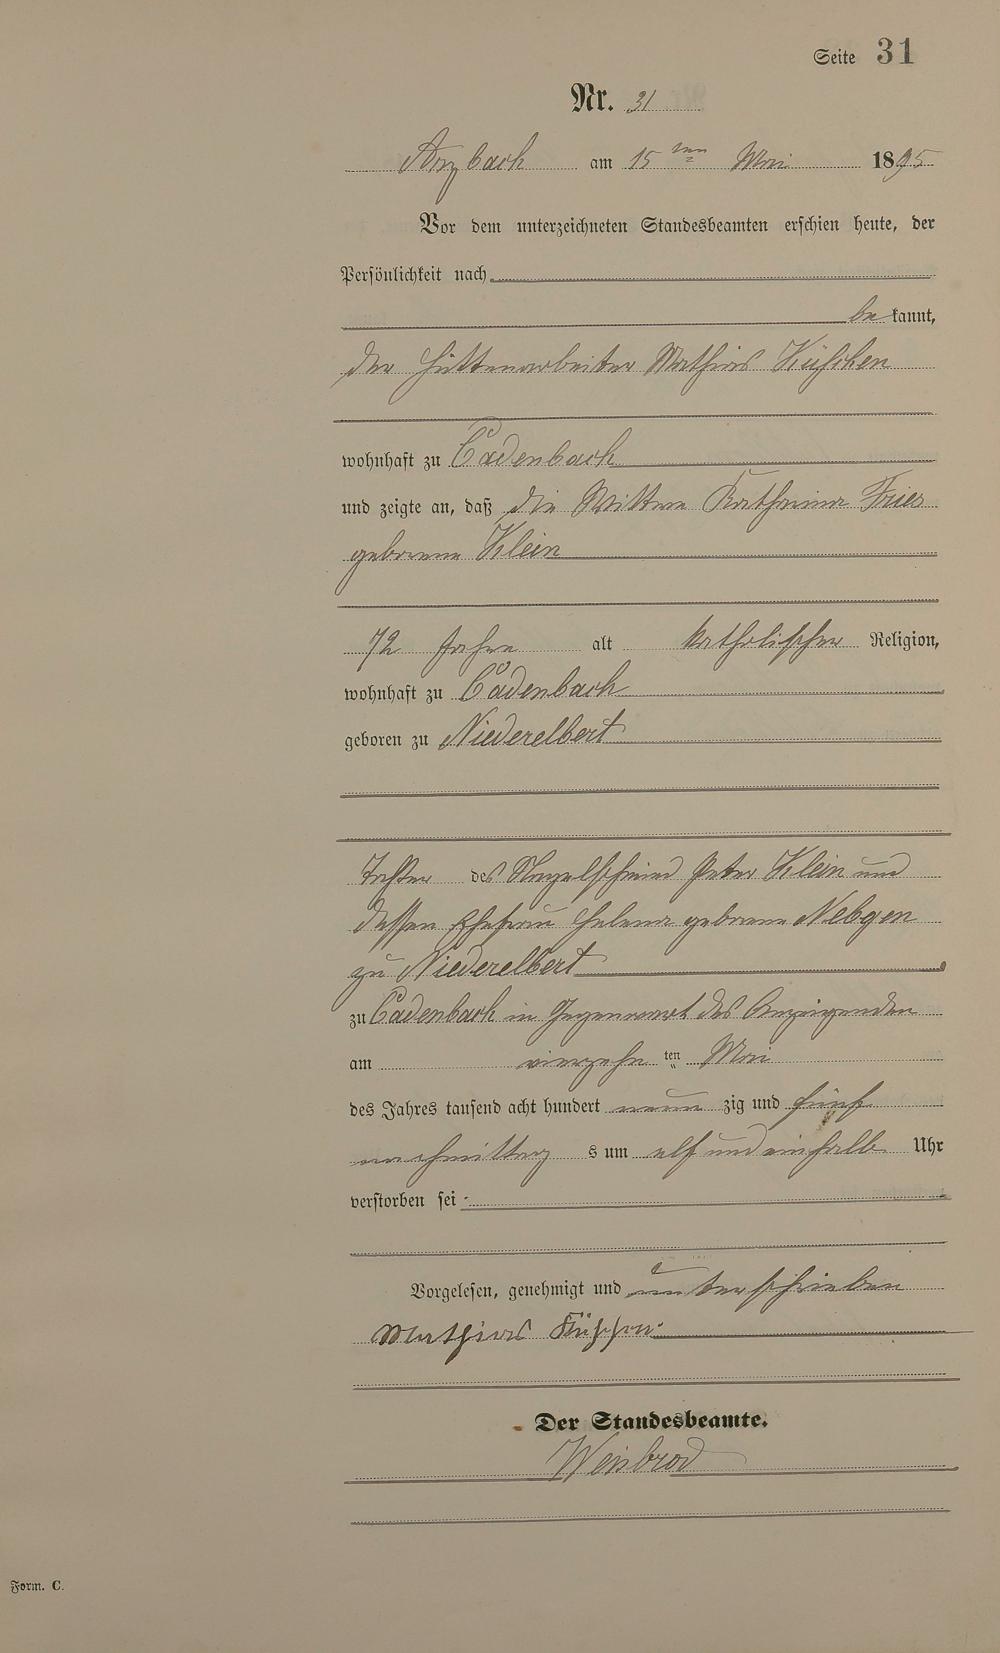 Seite 31
Nr. 31
Arzbach am 15ten Mai 1895
Vor dem unterzeichneten Standesbeamten erschien heute, der
Persönlichkeit nach
be kannt,
der Hüttenarbeiter Mathias Küschen
wohnhaft zu Cadenbach
und zeigte an, daß die Wittwe Katharina Fries
geborene Klein
72 Jahre alt katholischer Religion,
wohnhaft zu Cadenbach
geboren zu Niederelbert
Tochter des Nagelschmied Peter Klein und
dessen Ehefrau Helena geborene Nebgen
zu Niederelbert
zu Cadenbach in Gegenwart des Anzeigenden
am vierzehn ten Mai
des Jahres tausend acht hundert neun zig und fünf
nachmittag s um elf und ein halb Uhr
verstorben sei
Vorgelesen, genehmigt und unterschrieben
Mathias Küschen
Der Standesbeamte.
Weisbrod
Form. C.